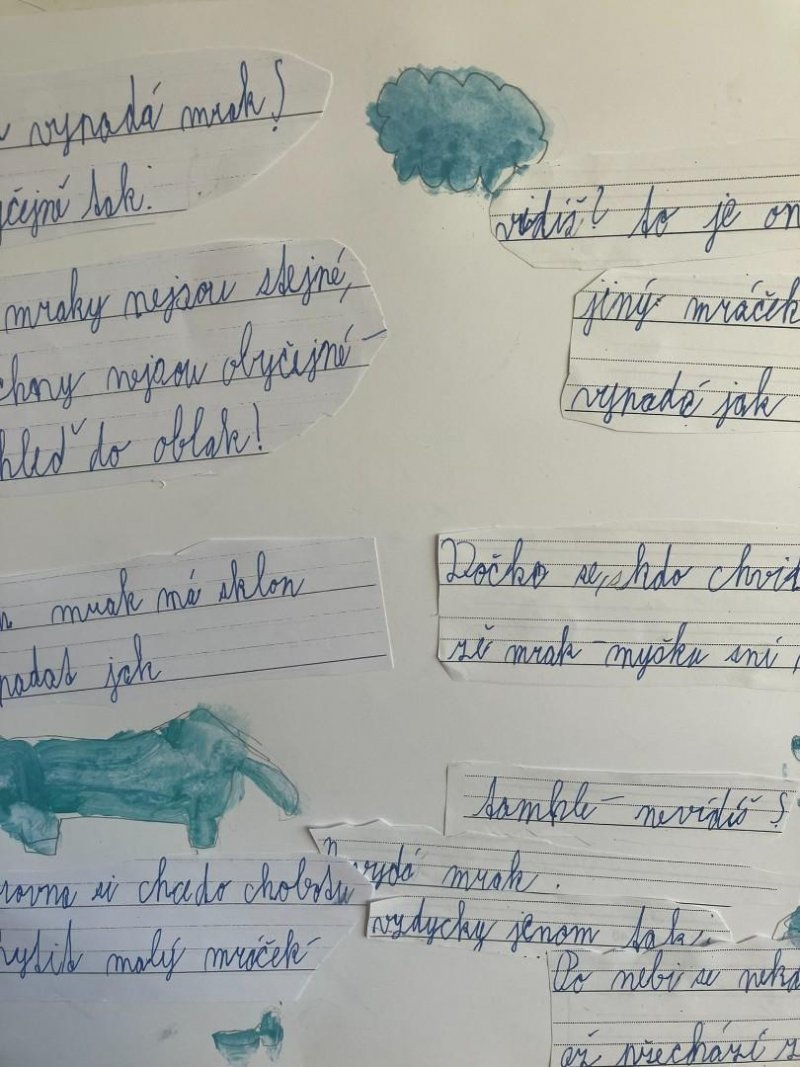 vypadá mrak?
yčejně tak.
mraky nejsou stejné,
chny nejsou obyčejné –
hleď do oblak!
mrak má sklon
padat jak
rovna si chcedo chobotu
hytit malý mráček
vidíš? to je on
jiný mráček
vypadá jak
Počko se, kdo chvíl
že mrak – myšku sní
tamhle – nevidíš?
mrak.
vždycky jenom tak.
Po nebi se neko
až přechází